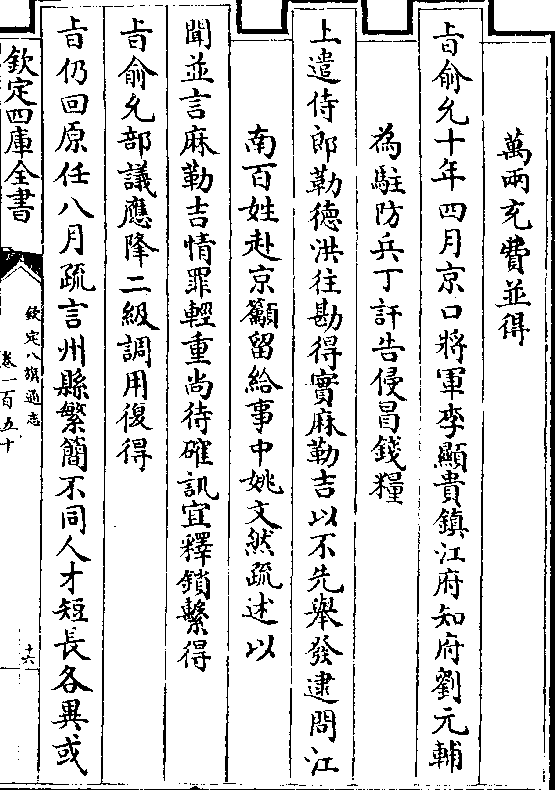 萬兩充費並得
㫖俞允十年四月京口將軍李顯貴鎮江府知府劉元輔
為駐防兵丁訐告侵冒錢糧
上遣侍郎勒德洪往勘得實麻勒吉以不先舉發逮問江
南百姓赴京籲留給事中姚文然疏述以
聞並言麻勒吉情罪輕重尚待確訊宜釋鎖繫得
㫖俞允部議應降二級調用復得
㫖仍回原任八月疏言州縣繁簡不同人才短長各異或
欽定四庫全書
欽定八旗通志
卷一百五十
十六